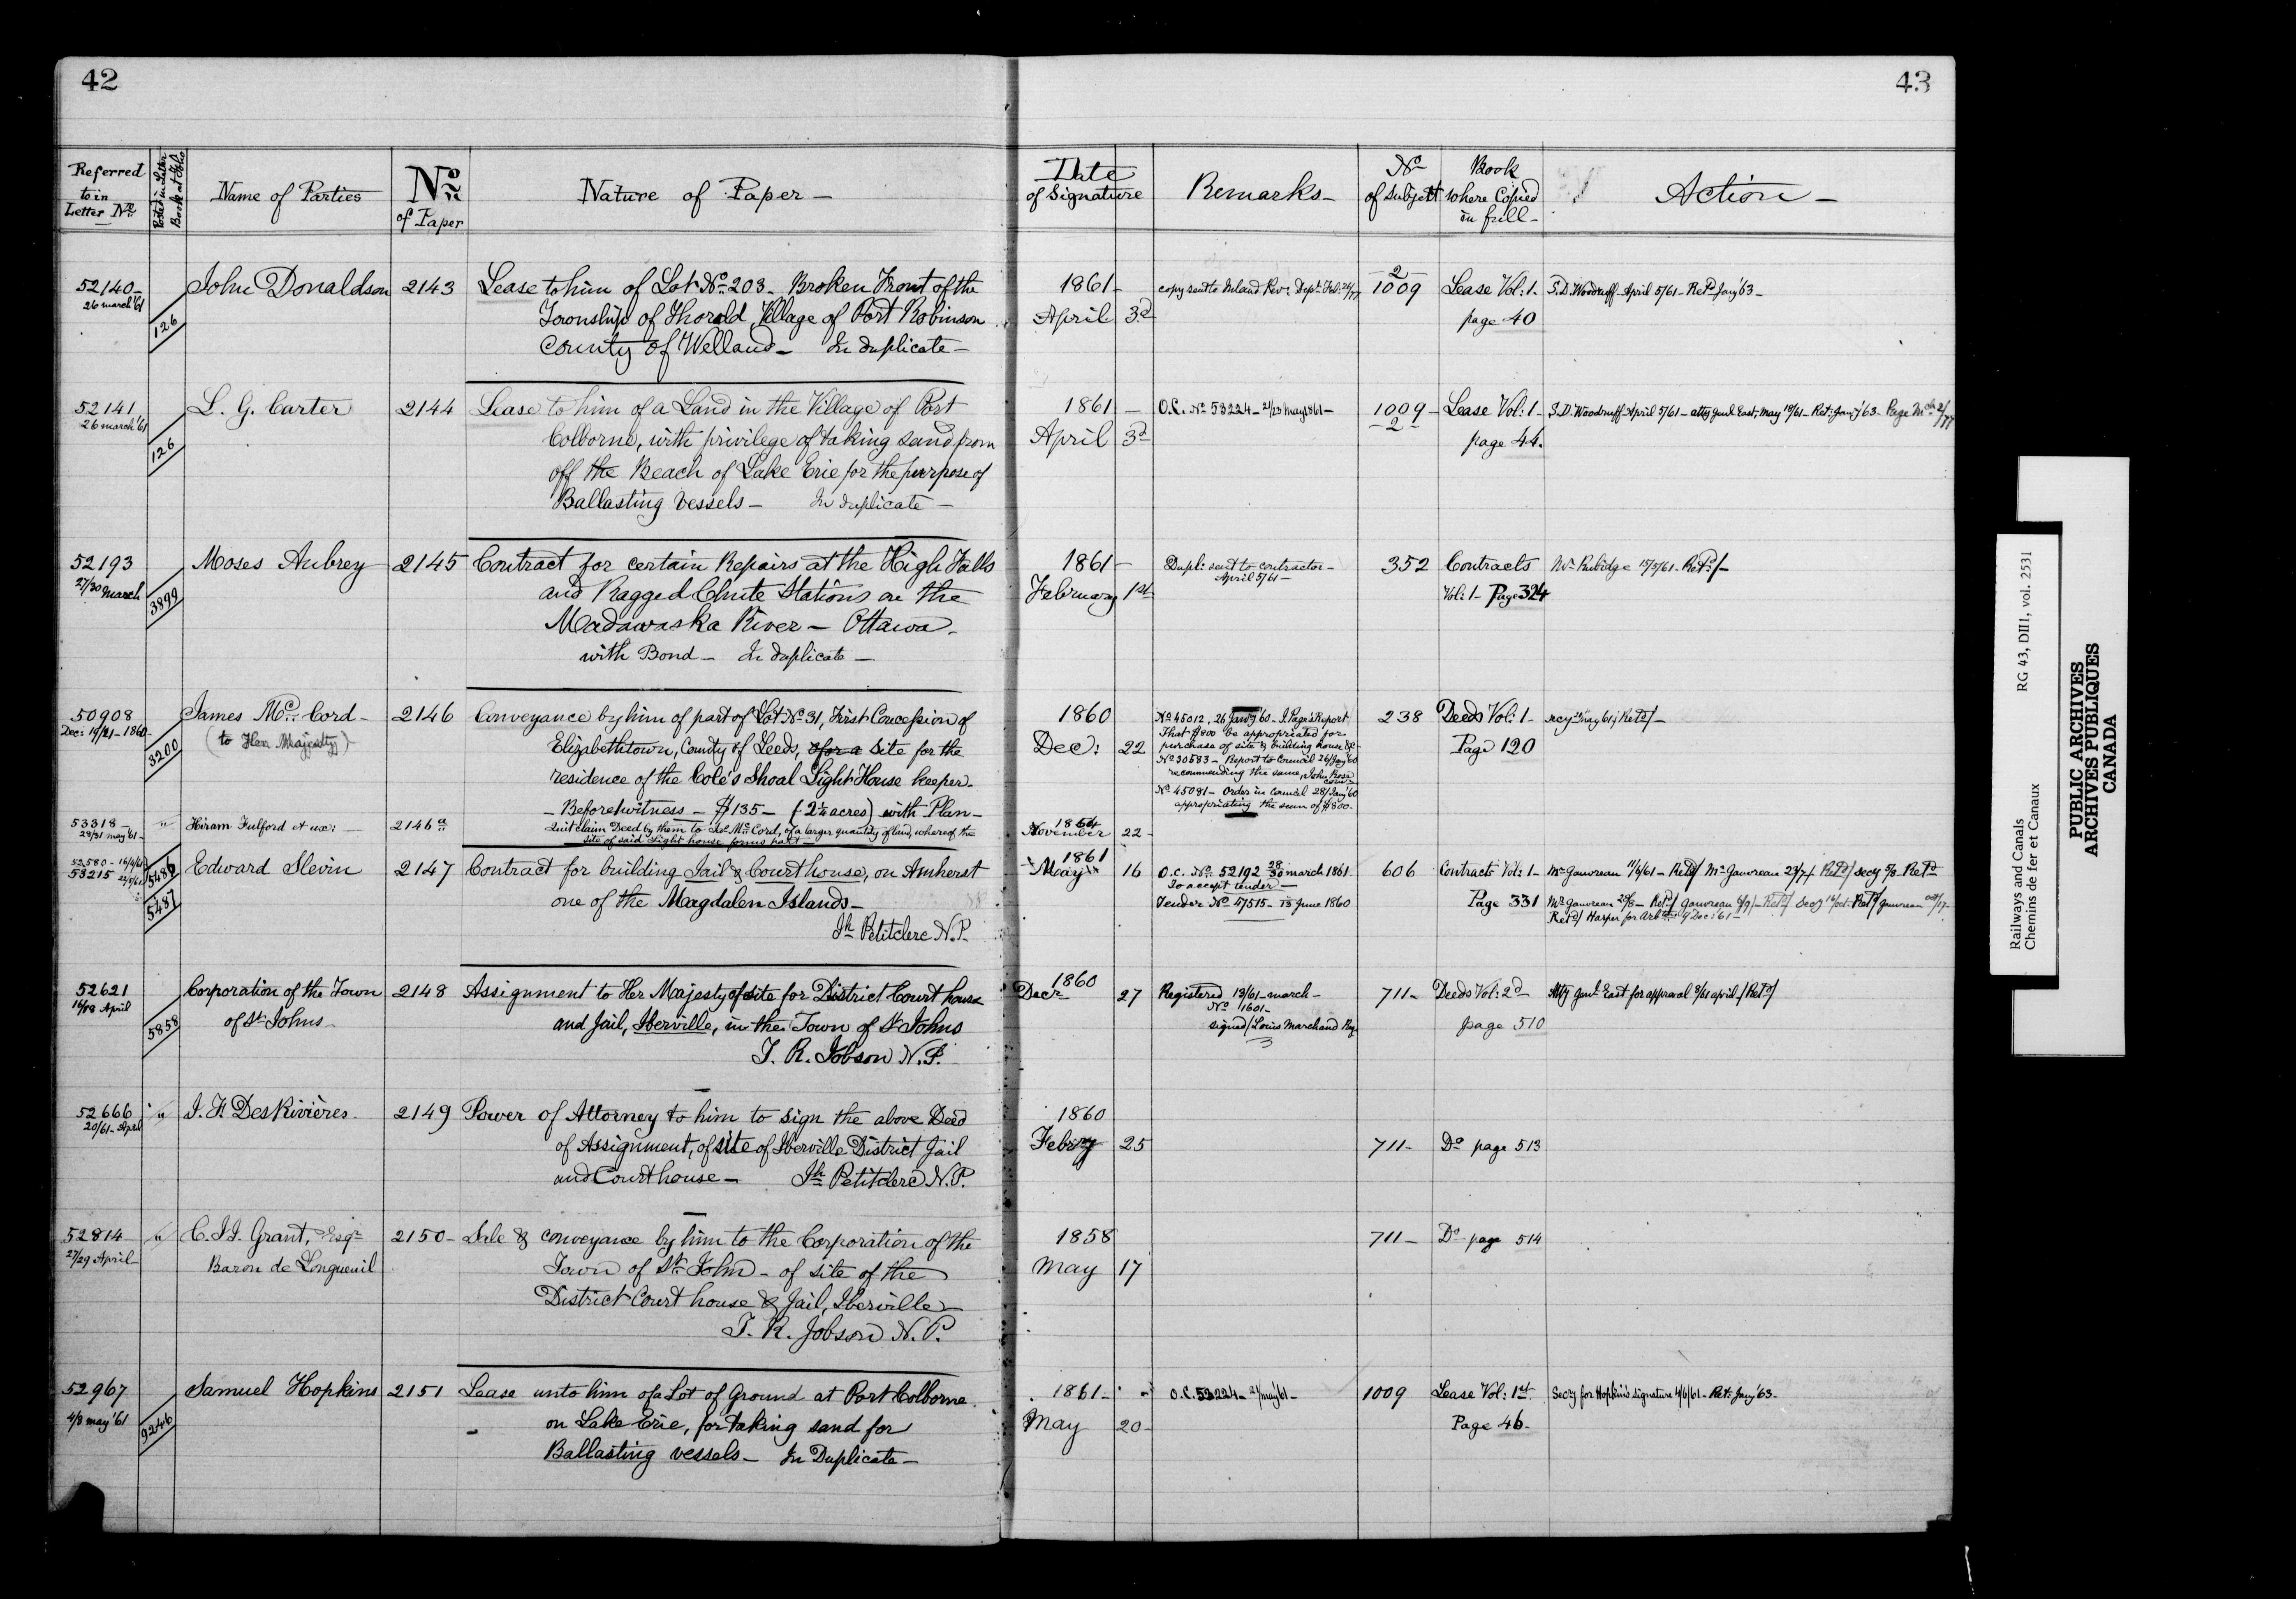 42
Referred to in Letter No.
Name of Parties
No. of Paper
Nature of Paper —
52140 —
26 march '61
126
John Donaldson
2143
Lease to him of Lot No. 203 — Broken Front of the
Township of Thorold, Village of Port Robinson
County of Welland — In duplicate —
52141
26 march '61
126
L. G. Carter
2144
Lease to him of a Land in the Village of Port
Colborne, with privilege of taking sand from
off the Beach of Lake Erie for the purpose of
Ballasting Vessels — In duplicate —
52193
27/30 march
3899
Moses Aubrey
2145
Contract for certain Repairs at the High Falls
and Ragged Chute Stations on the
Madawaska River — Ottawa.
with Bond — In duplicate —
50908
Dec: 19/21 - 1860
3200
James McCord —
(to Her Majesty)
2146
Conveyance by him of part of Lot No. 31, First Concession of
Elizabethtown, County of Leeds, site for the
residence of the Cole's Shoal Light House keeper.
— Before witness — $135 — (2¼ acres) with Plan —
53318 —
28/31 may '61 —
"
Hiram Fulford et ux: —
2146 a
Quit claim Deed by them to Jas. McCord, of a larger quantity of land, whereof the
site of said Light house forms part —
53215
5486
5487
Edward Slevin
2147
Contract for building Jail & Court house, on Amherst
one of the Magdalen Islands —
Jh Petitclerc N.P.
52621
16/18 April
5858
Corporation of the Town
of St Johns
2148
Assignment to Her Majesty of site for District Court house
and Jail, Iberville, in the Town of St Johns
T. R. Jobson N.P.
52666
20/61 - April
"
J. F. DesRivières.
2149
Power of Attorney to him to sign the above Deed
of Assignment, of site of Iberville District Jail
and Court house — Jh Petitclerc N.P.
52814
27/29 April
"
C. J. I. Grant, Esqr
Baron de Longueuil
2150 —
Sale & conveyance by him to the Corporation of the
Town of St. John — of site of the
District Court house & Jail, Iberville
T. R. Jobson N.P.
52967
4/8 may '61
9246
Samuel Hopkins
2151
Lease unto him of a Lot of Ground at Port Colborne
on Lake Erie, for taking sand for
Ballasting vessels — In Duplicate —
43
Date of Signature
Remarks —
No. of Subject
Book where Copied in full —
Action —
1861 —
April 3d
copy sent to Inland Rev: Dept.
2
1009
Lease Vol: 1 —
page 40
S. D. Woodruff — April 5/61 — Retd Jany '63 —
1861 —
April 3d
O.C. No. 53224 — 21/23 May 1861 —
1009 —
2
Lease Vol: 1 —
page 44.
S. D. Woodruff April 5/61 — atty Genl East, May
1861 —
February 1st
Dupli: sent to contractor —
April 5/61 —
352
Contracts
Vol: 1 — Page 324
Retd/—
1860
Dec: 22
No. 45012, 26 Jany '60 — J. Page's Report
That $800 be appropriated for
purchase of site & building house &c —
No. 30583 — Report to Council 26/Jany '60
recommending the same, John Rose
No. 45081 — Order in Council 28/Jany '60
appropriating the sum of $800 —
238
Deeds Vol: 1 —
Page 120
November 22 —
1861
May 16
O.C. No. 52192 28/30 march 1861
To accept tender —
Tender No. 47515 — 13 June 1860
606
Contracts Vol: 1 —
Page 331
Mr Gauvreau 11/6/61 — Retd/ Mr Gauvreau
1860
Decr 27
Registered 13/61 — march —
No 1601 —
signed/ Louis Marchand Reg.
711 —
Deeds Vol: 2d
page 510
Atty Genl East for approval 8/61 april / Retd/
1860
Febry 25
711 —
Do page 513
1858
May 17
711 —
Do page 514
1861 —
May 20 —
O.C. 53224 — 21/may '61 —
1009
Lease Vol: 1st.
Page 46 —
Secy for Hopkin's signature 4/6/61 — Retd Jany '63 —
Railways and Canals
Chemins de fer et Canaux
RG 43, DIII, vol. 2531
PUBLIC ARCHIVES
ARCHIVES PUBLIQUES
CANADA